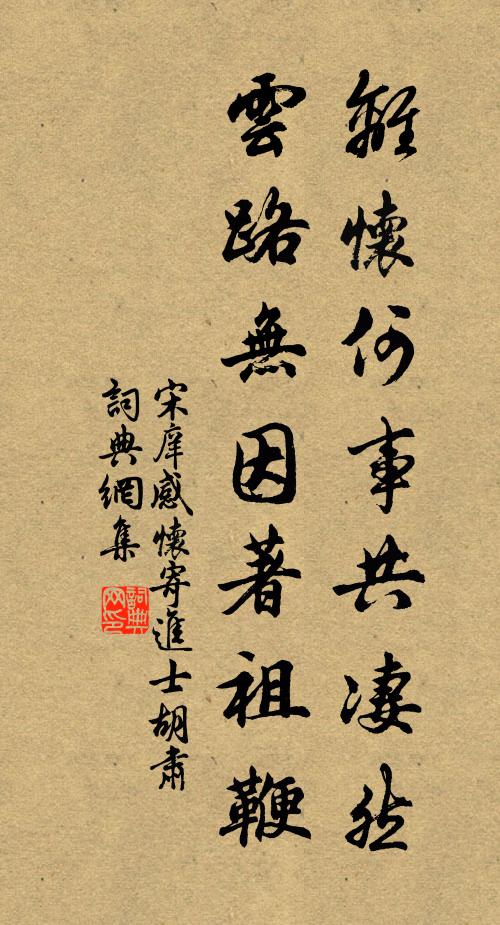 離懷何事共凄然
雲路無因著祖鞭
宋庠感懷寄進士胡肅
詞典網集
詞典
网印